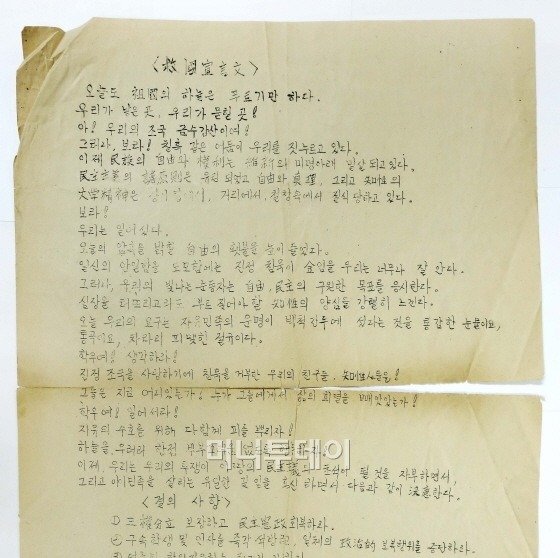 〈救國宣言文〉
오늘도 祖國의 하늘은 푸르기만 하다.
우리가 낳은 곳, 우리가 묻힐 곳!
아! 우리의 조국 금수강산이여!
그러나, 보라! 칠흑 같은 어둠이 우리를 짓누르고 있다.
이제 民族의 自由와 權利는 維新의 미명아래 말살되고 있다.
自由와 眞理, 그리고 知性의
거리에서, 철창속에서 질식 당하고 있다.
보라!
우리는 일어섰다.
오늘의 암흑을 밝힐 自由의 횃불을 높이 들었다.
일신의 안일만을 도모함에는 진정 침묵이 金임을 우리는 너무나 잘 안다.
그러나, 우리의 빛나는 눈동자는 自由, 民主의 구원한 목표를 응시한다.
심장을 터뜨리고라도 부르짖어야 할 知性의 양심을 강렬히 느낀다.
오늘 우리의 요구는 자유민족의 운명이 백척간두에 섰다는 것을 통감한 눈물이요,
통곡이요, 차라리 피맺힌 절규이다.
학우여! 생각하라!
진정 조국을 사랑하기에 침묵을 거부한 우리의 친구들, 知性人들을!
그들은 지금 어디있는가! 누가 그들에게서 삶의 희열을 빼앗았는가!
학우여! 일어서라!
자유의 수호를 위해 다함께 피를 뿌리자!
하늘을 우러러 한점
이제, 우리는 우리의 투쟁이 民主 초석이 될 것을 자부하면서,
그리고 이 민족을 살리는 유일한 길임을 확신하면서 다음과 같이 決意한다.
〈결의 사항〉
① 三權分立 보장하고 民主憲政회복하라.
② 구속학생 및 인사를 즉각 석방하고, 일체의 政治的 보복행위를 중단하라.
머니투데이